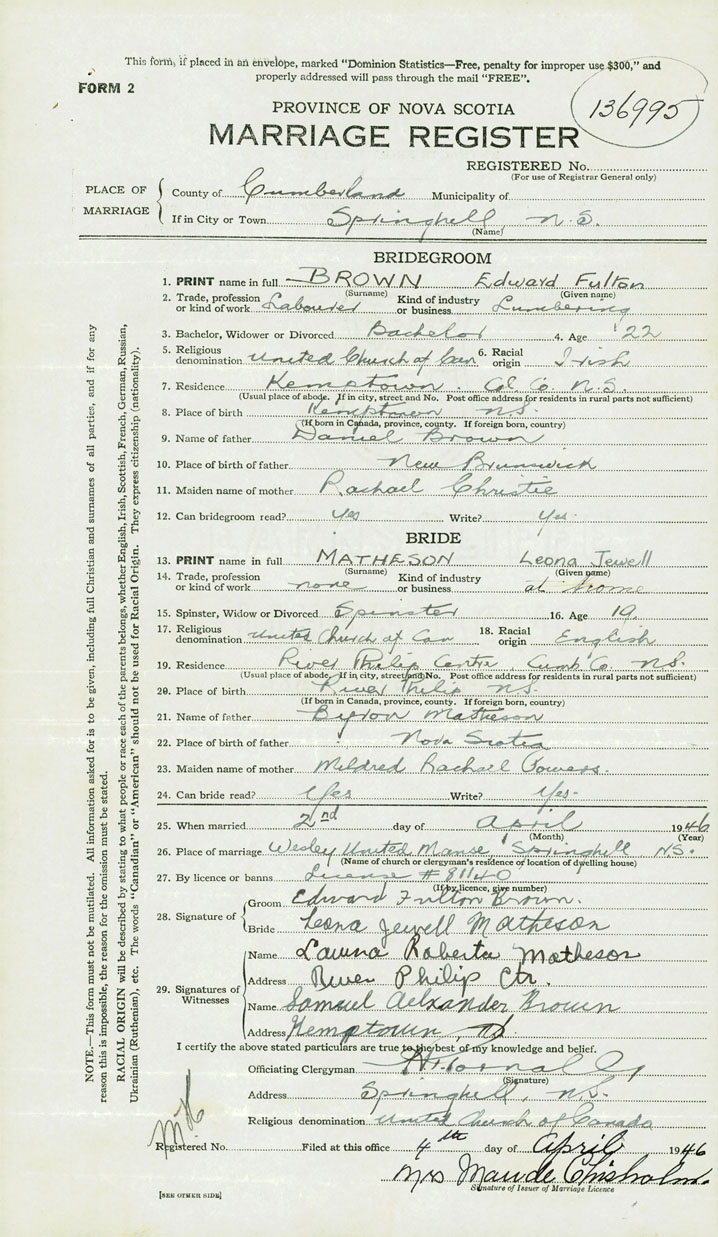 This form, if placed in an envelope, marked "Dominion Statistics—Free, penalty for improper use $300," and
properly addressed will pass through the mail "FREE".
FORM 2
136995
PROVINCE OF NOVA SCOTIA
MARRIAGE REGISTER
REGISTERED No.
(For use of Registrar General only)
PLACE OF MARRIAGE
County of Cumberland Municipality of
If in City or Town Springhill, N.S.
(Name)
BRIDEGROOM
1. PRINT name in full BROWN Edward Fulton
(Surname) (Given name)
2. Trade, profession or kind of work Labourer Kind of industry or business Lumbering
3. Bachelor, Widower or Divorced Bachelor 4. Age 22
5. Religious denomination United Church of Can 6. Racial origin Irish
7. Residence Kemptown Col. Co. N.S.
(Usual place of abode. If in city, street and No. Post office address for residents in rural parts not sufficient)
8. Place of birth Kemptown N.S.
(If born in Canada, province, county. If foreign born, country)
9. Name of father Daniel Brown
10. Place of birth of father New Brunswick
11. Maiden name of mother Rachael Christie
12. Can bridegroom read? Yes Write? Yes
BRIDE
13. PRINT name in full MATHESON Leona Jewell
(Surname) (Given name)
14. Trade, profession or kind of work none Kind of industry or business at home
15. Spinster, Widow or Divorced Spinster 16. Age 19
17. Religious denomination United Church of Can 18. Racial origin English
19. Residence River Philip Centre, Cumb Co. N.S.
(Usual place of abode. If in city, street and No. Post office address for residents in rural parts not sufficient)
20. Place of birth River Philip N.S.
(If born in Canada, province, county. If foreign born, country)
21. Name of father Byron Matheson
22. Place of birth of father Nova Scotia
23. Maiden name of mother Mildred Rachael Powers
24. Can bride read? Yes Write? Yes
25. When married 2nd day of April 1946
(Month) (Year)
26. Place of marriage Wesley United Manse Springhill N.S.
(Name of church or clergyman's residence or location of dwelling house)
27. By licence or banns License # 81140
(If by licence, give number)
28. Signature of
Groom Edward Fulton Brown.
Bride Leona Jewell Matheson
29. Signatures of Witnesses
Name Roberta Matheson
Address River Philip Ctr.
Name Samuel Alexander Brown
Address Kemptown
I certify the above stated particulars are true to the best of my knowledge and belief.
Officiating Clergyman
(Signature)
Address Springhill, N.S.
Religious denomination United Church of Canada
Registered No. Filed at this office 4th day of April 1946
Mrs Maude Chisholm.
Signature of Issuer of Marriage Licence
[SEE OTHER SIDE]
NOTE.—This form must not be mutilated. All information asked for is to be given, including full Christian and surnames of all parties, and if for any
reason this is impossible, the reason for the omission must be stated.
RACIAL ORIGIN will be described by stating to what people or race each of the parents belongs, whether English, Irish, Scottish, French, German, Russian,
Ukrainian (Ruthenian), etc. The words "Canadian" or "American" should not be used for Racial Origin. They express citizenship (nationality).